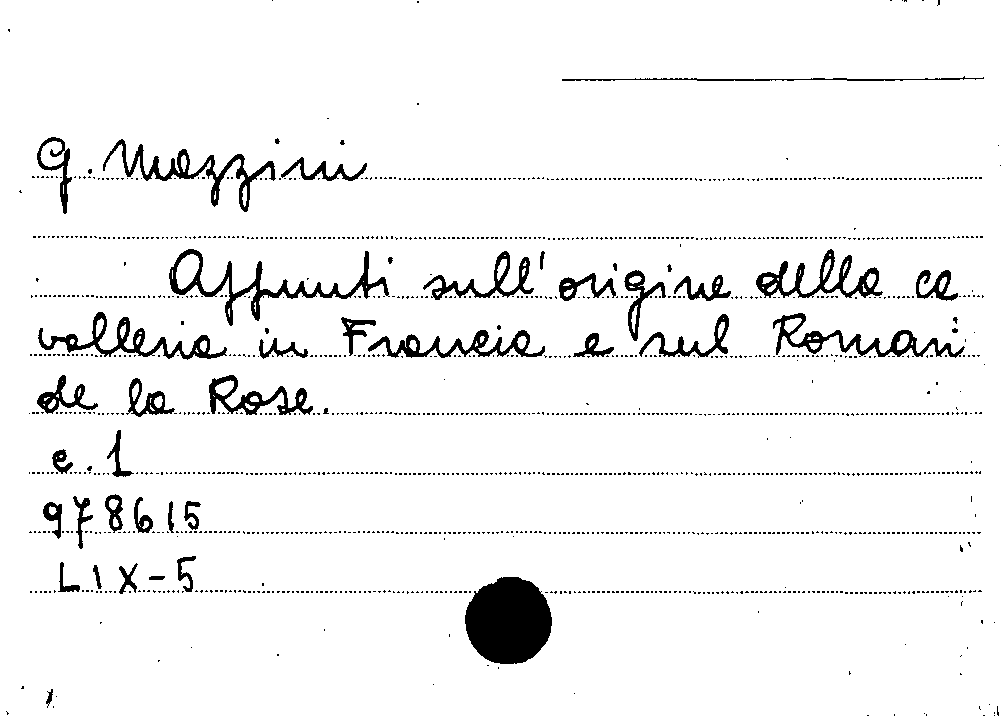 G. Mazzini
Appunti sull'origine della ca
valleria in Francia e sul Roman
de la Rose.
c. 1
978615
LIX-5